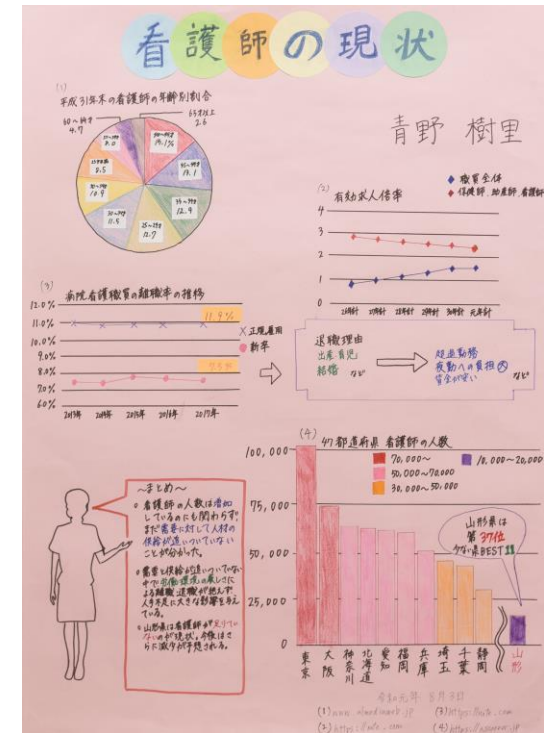 看護師の現状
(1)
平成31年末の看護師の年齢別割合
60~64才
4.7
65才以上
2.6
8.0
8.5
10.9
11.5
12.7
12.4
13.1
青野 樹里
(2)
有効求人倍率
職員全体
保健師、助産師、看護師
4
3
2
1
0
26年計
27年計
28年計
29年計
30年計
元年計
(3)
病院看護職員の離職率の推移
12.0%
11.0%
10.0%
9.0%
8.0%
7.0%
6.0%
11.9%
7.5%
正規雇用
新卒
2013年
2014年
2015年
2016年
2017年
退職理由
出産、育児
結婚 など
超過勤務
夜勤への負担 大
賃金が安い など
(4)
47都道府県 看護師の人数
70,000~
50,000~70,000
30,000~50,000
10,000~20,000
100,000
75,000
50,000
25,000
0
東京
大阪
神奈川
北海道
愛知
福岡
兵庫
埼玉
千葉
静岡
山形
山形県は
第37位
少ない県BEST
~まとめ~
看護師の人数は増加
しているのにも関わらず、
まだ需要に対して人材の
供給が追いついていない
ことが分かった。
需要と供給が追いついていない
中で労働環境の厳しさに
よる離職、退職が進んで
人手不足に大きな影響を与え
ている。
山形県は看護師が足りてい
ないのが現状。今後はさ
らに減少が予想される。
令和元年
(1)
(2)
(3)
(4)